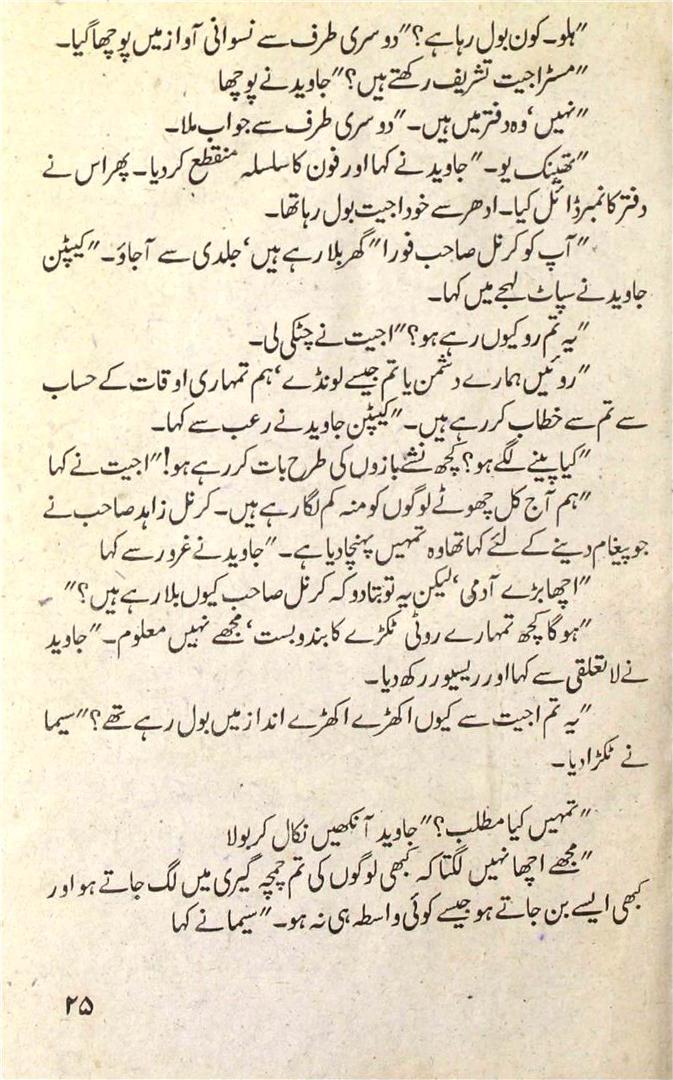 "ہلو۔ کون بول رہا ہے؟" دوسری طرف سے نسوانی آواز میں پوچھا گیا۔
"مسٹر اجیت تشریف رکھتے ہیں؟" جاوید نے پوچھا
"نہیں' وہ دفتر میں ہیں۔" دوسری طرف سے جواب ملا۔
"تھینک یو۔" جاوید نے کہا اور فون کا سلسلہ منقطع کر دیا۔ پھر اس نے
دفتر کا نمبر ڈائل کیا۔ ادھر سے خود اجیت بول رہا تھا۔
"آپ کو کرنل صاحب فورا" گھر بلا رہے ہیں' جلدی سے آجاؤ۔" کیپٹن
جاوید نے سپاٹ لہجے میں کہا۔
"یہ تم رو کیوں رہے ہو؟" اجیت نے چٹکی لی۔
"روئیں ہمارے دشمن یا تم جیسے لونڈے' ہم تمہاری اوقات کے حساب
سے تم سے خطاب کر رہے ہیں۔" کیپٹن جاوید نے رعب سے کہا۔
"کیا پینے لگے ہو؟ کچھ نشے بازوں کی طرح بات کر رہے ہو!" اجیت نے کہا
"ہم آج کل چھوٹے لوگوں کو منہ کم لگا رہے ہیں۔ کرنل زاہد صاحب نے
جو پیغام دینے کے لئے کہا تھا وہ تمہیں پہنچا دیا ہے۔" جاوید نے غرور سے کہا
"اچھا بڑے آدمی' لیکن یہ تو بتا دو کہ کرنل صاحب کیوں بلا رہے ہیں؟"
"ہوگا کچھ تمہارے روٹی ٹکڑے کا بندوبست' مجھے نہیں معلوم۔" جاوید
نے لا تعلقی سے کہا اور ریسیور رکھ دیا۔
"یہ تم اجیت سے کیوں اکھڑے اکھڑے انداز میں بول رہے تھے؟" سیما
نے ٹکڑا دیا۔
"تمہیں کیا مطلب؟" جاوید آنکھیں نکال کر بولا
"مجھے اچھا نہیں لگتا کہ کبھی لوگوں کی تم چمچہ گیری میں لگ جاتے ہو اور
کبھی ایسے بن جاتے ہو جیسے کوئی واسطہ ہی نہ ہو۔" سیما نے کہا
۲۵